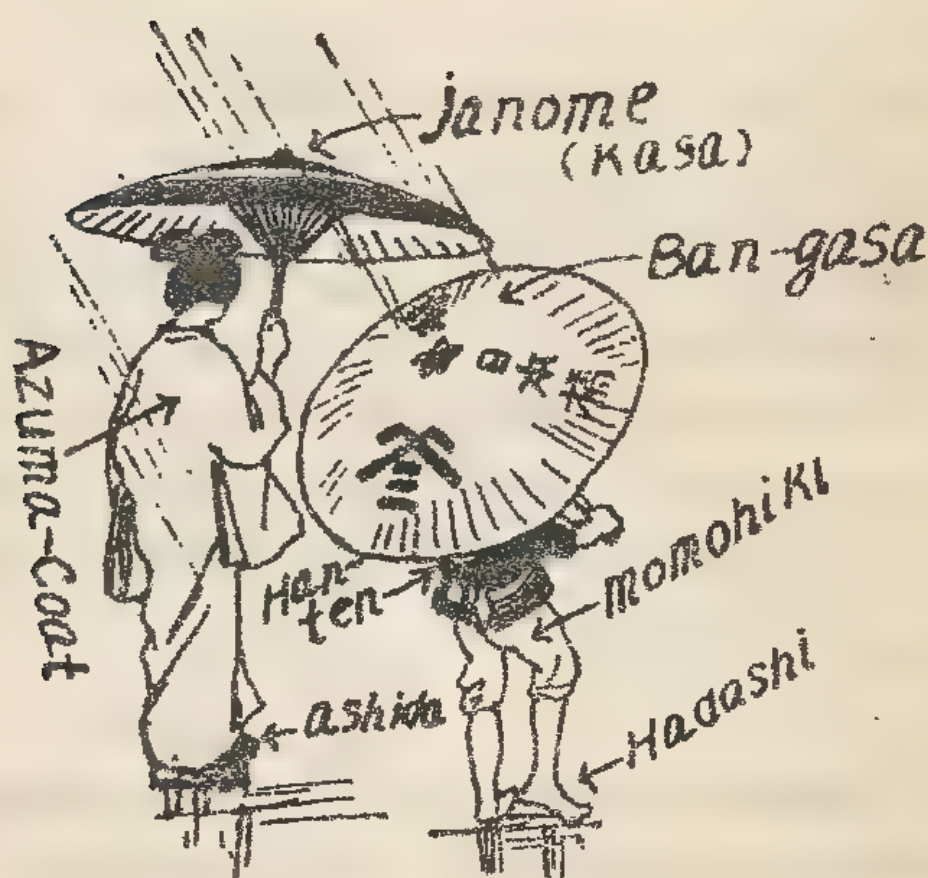 Janome
(Kasa)
Ban-gasa
Azuma-Coat
Han-
ten
momohiki
ashida
Hadashi